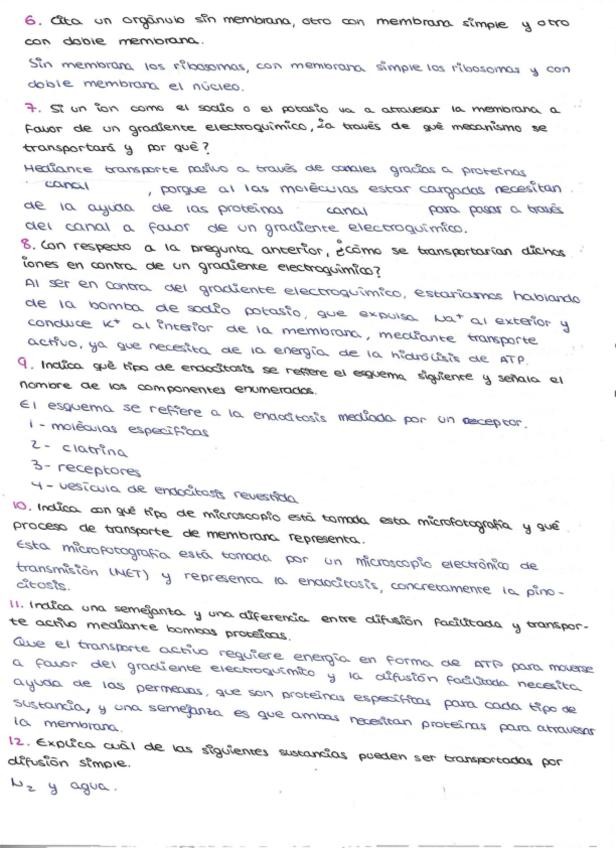 6. Cita un orgánulo sin membrana, otro con membrana simple y otro
con doble membrana.
Sin membrana los ribosomas, con membrana simple los ribosomas y con
doble membrana el núcleo.
7. Si un ion como el sodio o el potasio va a atravesar la membrana a
favor de un gradiente electroquímico, ¿a través de qué mecanismo se
transportará y por qué?
Mediante transporte pasivo a través de canales gracias a proteínas
canal , porque al las moléculas estar cargadas necesitan
de la ayuda de las proteínas canal para pasar a través
del canal a favor de un gradiente electroquímico.
8. Con respecto a la pregunta anterior, ¿cómo se transportarían dichos
iones en contra de un gradiente electroquímico?
Al ser en contra del gradiente electroquímico, estaríamos hablando
de la bomba de sodio potasio, que expulsa Na⁺ al exterior y
conduce K⁺ al interior de la membrana, mediante transporte
activo, ya que necesita de la energía de la hidrólisis de ATP.
9. Indica qué tipo de endocitosis se refiere el esquema siguiente y señala el
nombre de los componentes enumerados.
El esquema se refiere a la endocitosis mediada por un receptor.
1 - moléculas específicas
2 - clatrina
3 - receptores
4 - vesícula de endocitosis revestida
10. Indica con qué tipo de microscopio está tomada esta microfotografía y qué
proceso de transporte de membrana representa.
Esta microfotografía está tomada por un microscopio electrónico de
transmisión (MET) y representa la endocitosis, concretamente la pino-
citosis.
11. Indica una semejanza y una diferencia entre difusión facilitada y transpor-
te activo mediante bombas proteicas.
Que el transporte activo requiere energía en forma de ATP para moverse
a favor del gradiente electroquímico y la difusión facilitada necesita
ayuda de las permeasas, que son proteínas específicas para cada tipo de
sustancia, y una semejanza es que ambas necesitan proteínas para atravesar
la membrana.
12. Explica cuál de las siguientes sustancias pueden ser transportadas por
difusión simple.
N₂ y agua.